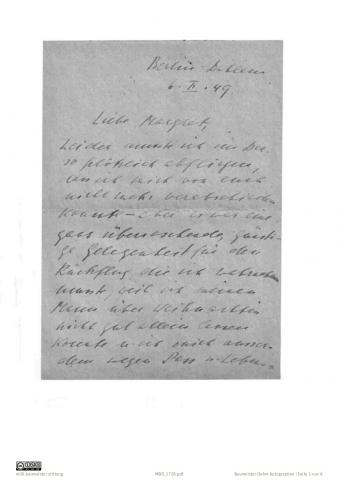 Berlin-Dahlem
6. II. 49
Liebe Margret,
Leider musste ich im Dez.
so plötzlich abfliegen,
dass ich mich von euch
nicht mehr verabschieden
konnte – aber es war eine
ganz überraschende, günsti-
ge Gelegenheit für den
Rückflug, die ich wahrnehmen
musste, weil ich meinen
Mann über Weihnachten
nicht gut allein lassen
konnte u. ich mich ausser-
dem wegen Pass u. Lebens-
willi baumeister stiftung
Baumeister-Dahm Autographen | Seite 1 von 4